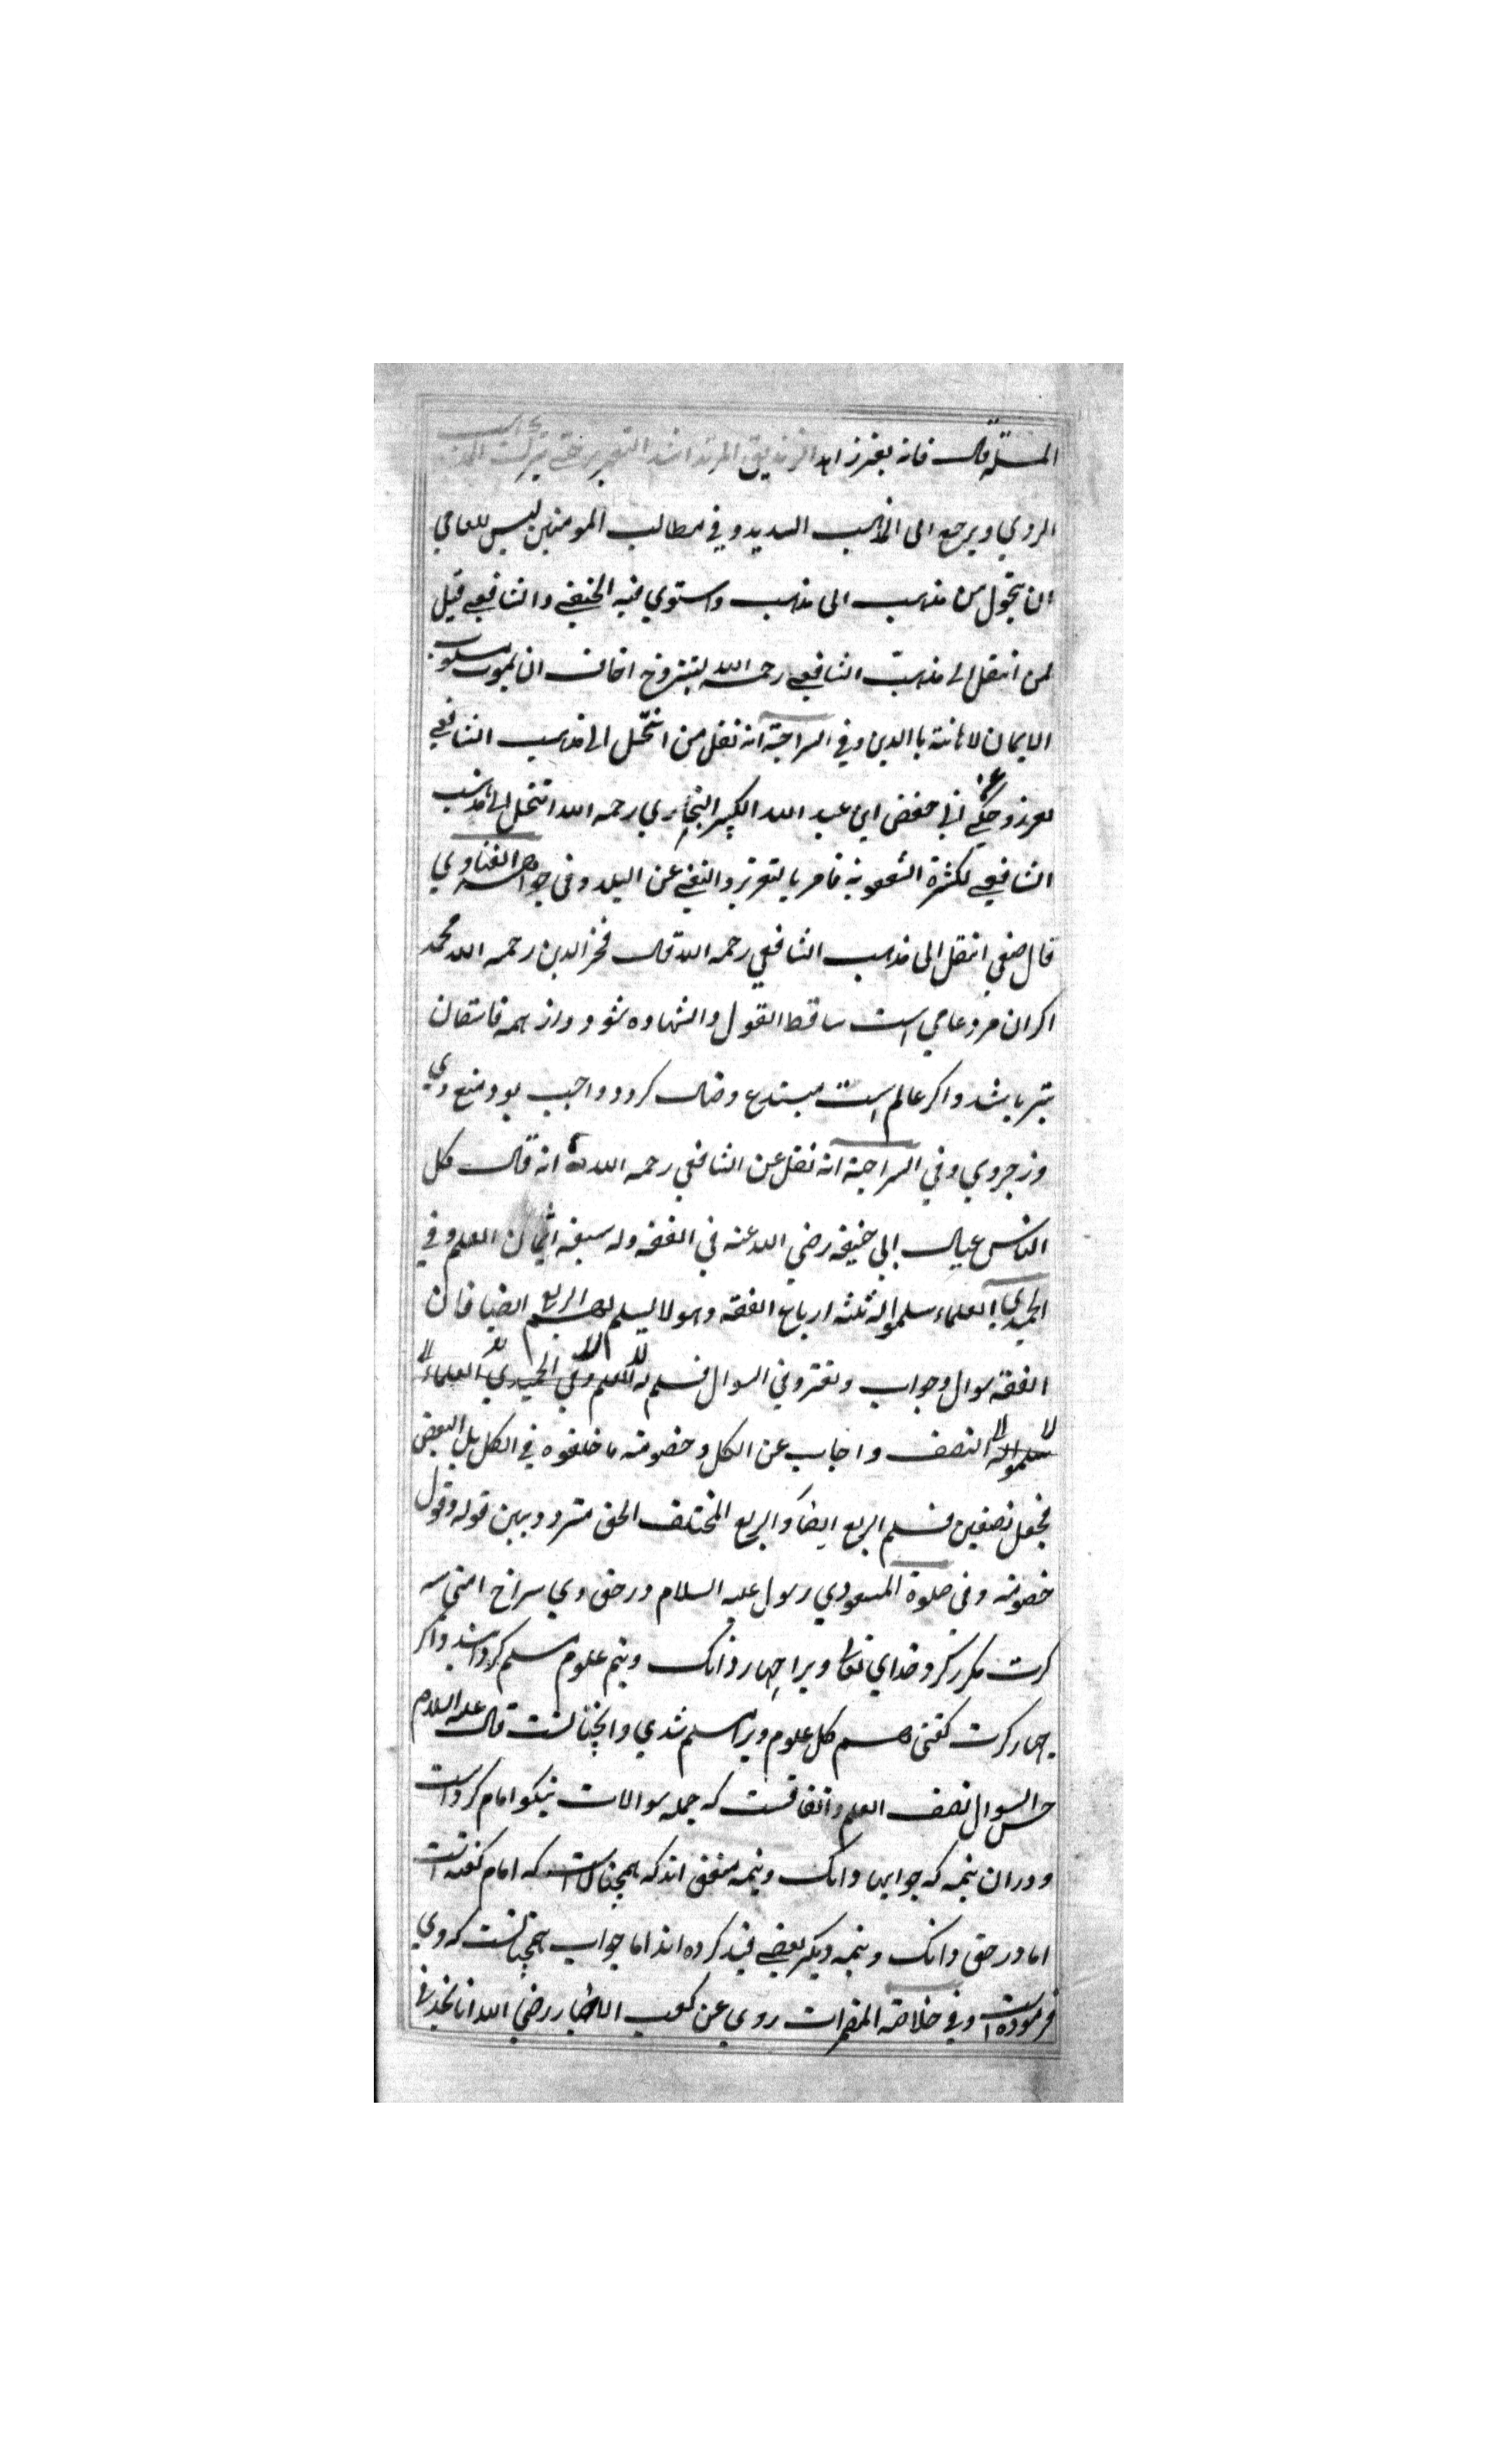 المسئلة قال فانه يعزر اهد الزنديق المرتد اشد التعزير حتى يترك المذهب
الردي ويرجع الى المذهب السديد وفي مطالب المومنين ليس للعامي
ان يتحول من مذهب الى مذهب واستوي فيه الحنفي والشافعي قيل
لمن انتقل الى مذهب الشافعي رحمه الله ليتزوج اخاف ان يموت مسلوب
الايمان لاهانته باالدين وفي السراجية انه نقل من انتحل الى مذهب الشافعي
يعزر وحكي ان ابي حفص ابي عبد الله الكبير البخاري رحمه الله انتحل الى مذهب
الشافعي لكثرة الشفعوية فامر بالتعزير والنفي عن البلد وفي جواهر الفتاوي
قال حنفي انتقل الى مذهب الشافعي رحمه الله قال فخر الدين رحمه الله محمد
اكر ان مرد عامي است ساقط القول والشهاده شود و از همه فاسقان
بتر باشد واكر عالم است مبتدع وضال كردد و واجب بود منع وي
وزجر وي وفي السراجية انه نقل عن الشافعي رحمه الله انه قال كل
الناس عيال ابي حنيفه رضي الله عنه في الفقه وله سبعة اثمان العلم وفي
الحميدي العلماء سلموا له ثلثه ارباع الفقه وهو لا يسلم لهم الربع ايضا فان
الفقه سوال وجواب وتفرد في السوال فسلم له العلم وفي الحميدي العلماء
سلموا له النصف واجاب عن الكل وخصومه ما خلفوه في الكل بل البعض
فجعل نصفين فسلم الربع ايضا والربع المختلف الحق متردد بين قوله وقول
خصومه وفي صلوة المسعودي رسول عليه السلام در حق وي سراج امتي سه
كرت مكرر كرد خداي تعالى ويرا چهار دانك ونيم علوم مسلم كرد است واكر
چهار كرت كفتي مسلم كل علوم ويرا مسلم شدي وانچنانست قال عليه السلام
حسن السوال نصف العلم واتفاقست كه جمله سوالات نيكو امام كرد است
ودران نيمه كه جوابها دانك ونيمه متفق اند كه همچنانست كه امام كفته است
اما در حق دانك ونيمه ديكر بعضي قيد كرده اند اما جواب همچنانست كه وي
فرموده است وفي خلاصة المضمرات روي عن كعب الاحبار رضي الله انا نجد في